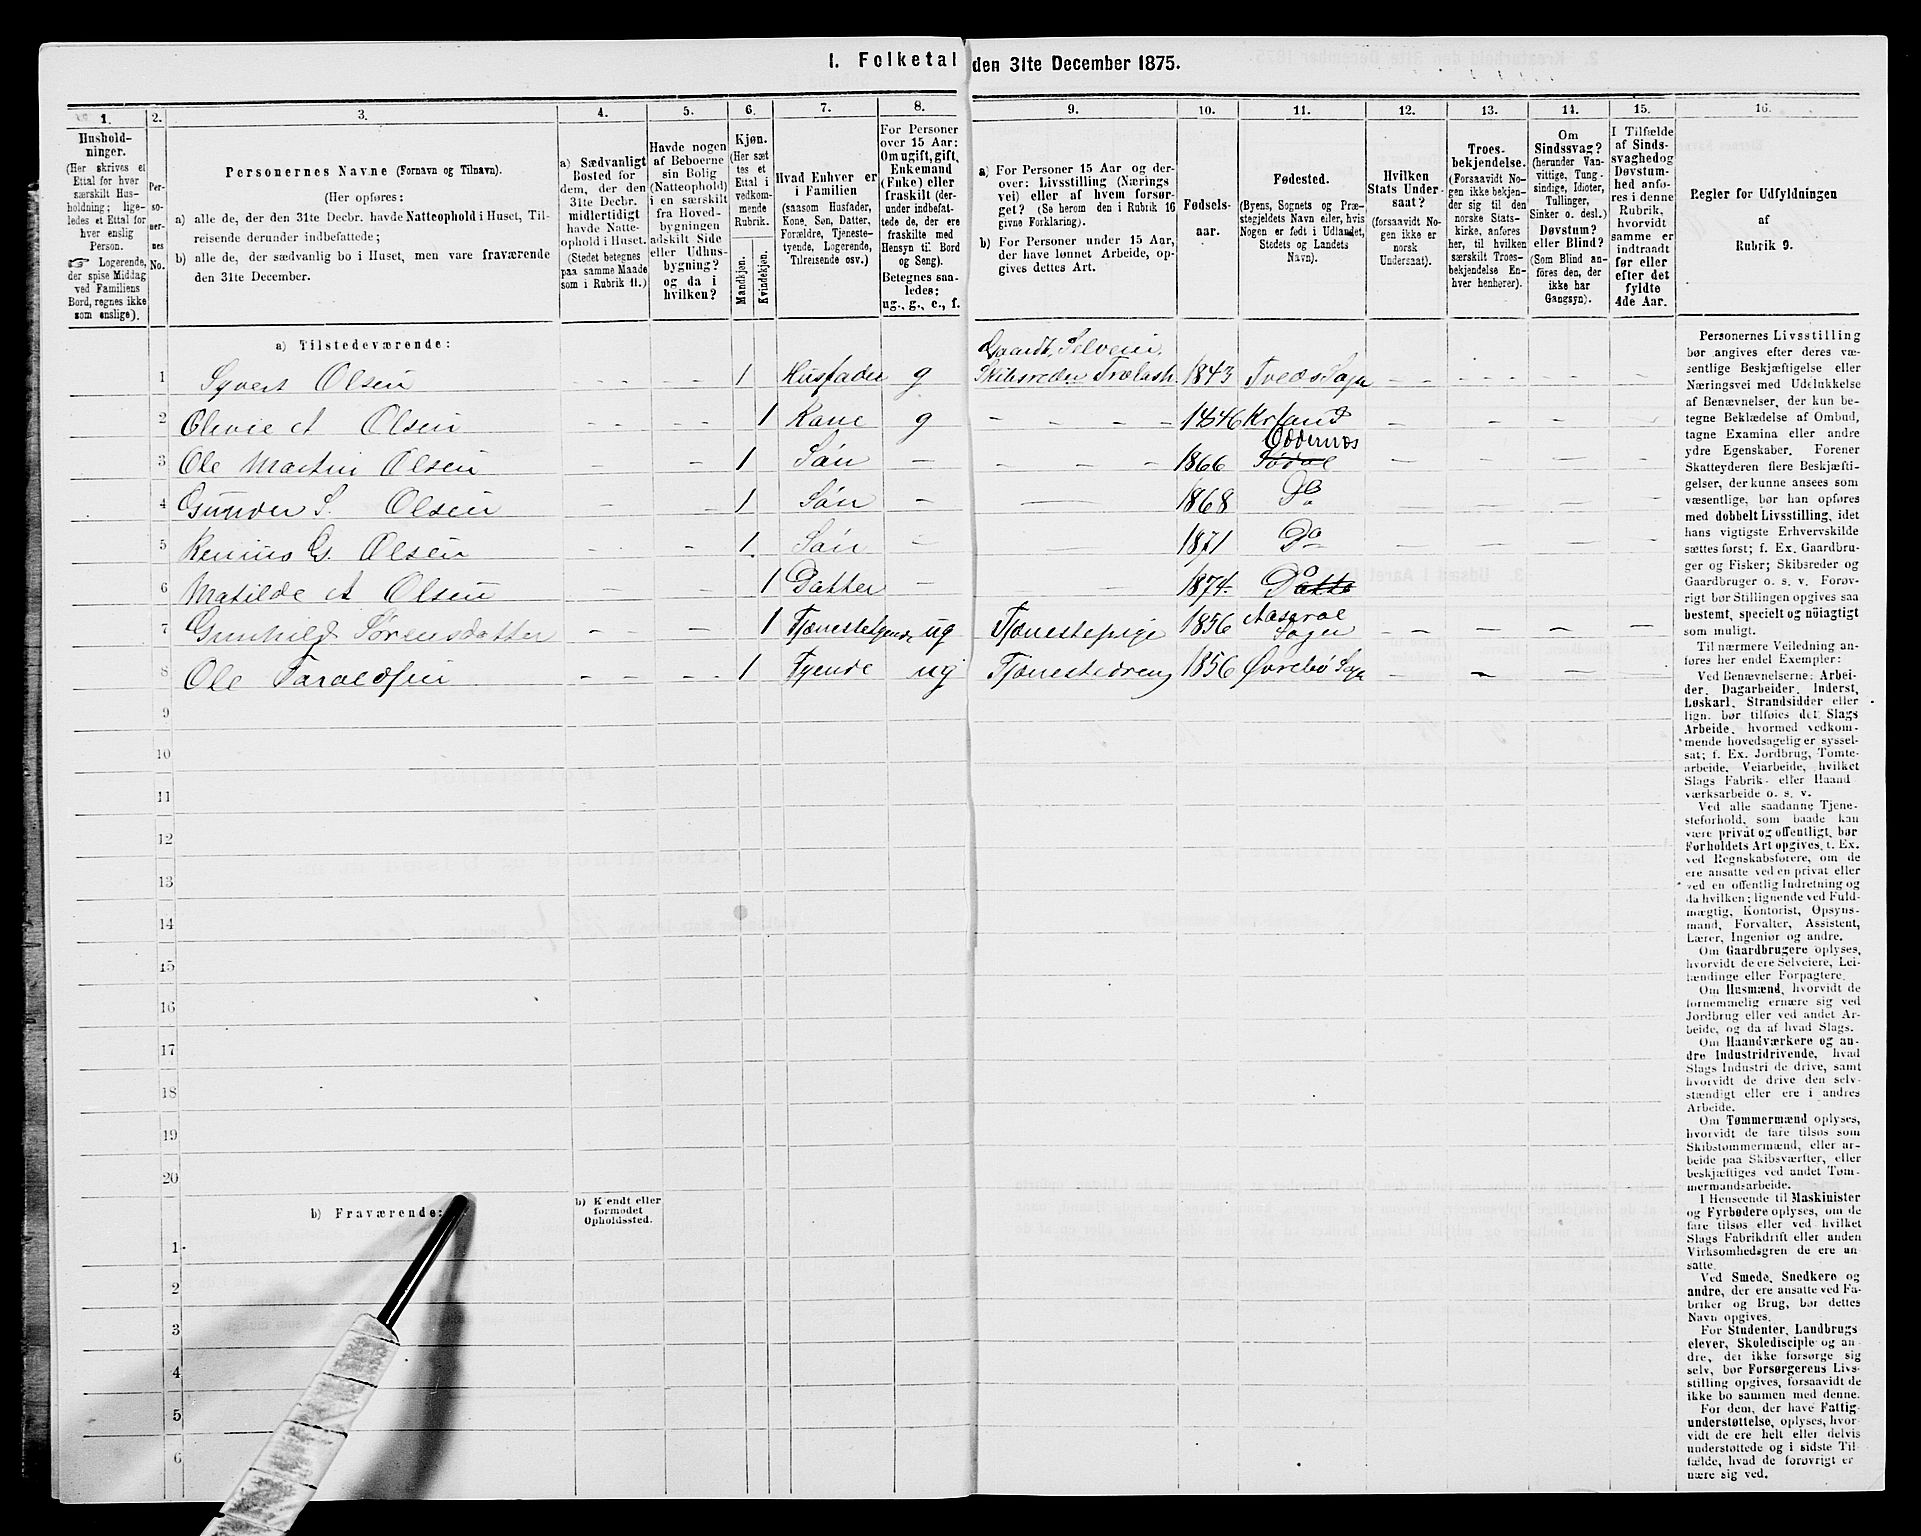 I. Folketal den 31te December 1875.
1. 2. 3. 4. 5. 6. 7. 8. 9. 10. 11. 12. 13. 14. 15. 16.
Hushold-
ninger.
(Her skrives et
Ettal for hver
særskilt Hus-
holdning; lige-
ledes et Ettal for
hver enslig
Person.
☞ Logerende,
der spise Middag
ved Familiens
Bord, regnes ikke
som enslige).
Per-
so-
ner-
nes
No.
Personernes Navne (Fornavn og Tilnavn).
(Her opføres:
a) alle de, der den 31te Decbr. havde Natteophold i Huset, Til-
reisende derunder indbefattede;
b) alle de, der sædvanlig bo i Huset, men vare fraværende
den 31te December.
a) Sædvanligt
Bosted for
dem, der den
31te Decbr.
midlertidigt
havde Natte-
ophold i Huset.
(Stedet betegnes
paa samme Maade
som i Rubrik 11.)
Havde nogen
af Beboerne
sin Bolig
(Natteophold)
i en særskilt
fra Hoved-
bygningen
adskilt Side
eller Udhus-
bygning?
og da i
hvilken?
Kjøn.
(Her sæt
tes et
Ettal i
vedkom-
mende
Rubrik.
Mandkjøn.
Kvindekjøn.
Hvad Enhver er
i Familien
(saasom Husfader,
Kone, Søn, Datter,
Forældre, Tjeneste-
tyende, Logerende,
Tilreisende osv.)
For Personer
over 15 Aar:
Om ugift, gift,
Enkemand
(Enke) eller
fraskilt (der-
under indbefat-
tede de, der ere
fraskilte med
Hensyn til Bord
og Seng).
Betegnes saa-
ledes:
ug., g., e., f.
a) For Personer 15 Aar og der-
over: Livsstilling (Nærings
vei) eller af hvem forsør-
get? (Se herom den i Rubrik 16
givne Forklaring).
b) For Personer under 15 Aar,
der have lønnet Arbeide, op-
gives dettes Art.
Fødsels-
aar.
Fødested.
(Byens, Sognets og Præ-
stegjeldets Navn eller, hvis
Nogen er født i Udlandet,
Stedets og Landets
Navn).
Hvilken
Stats Under-
saat?
(forsaavidt No-
gen ikke er
norsk
Undersaat).
Troes-
bekjendelse.
(Forsaavidt No-
gen ikke bekjen-
der sig til den
norske Stats-
kirke, anføres
her, til hvilken
særskilt Troes-
bekjendelse En-
hver henhører).
Om
Sindssvag?
(herunder Van-
vittige, Tung-
sindige, Idioter,
Tullinger,
Sinker o. desl.)
Døvstum?
eller Blind?
(Som Blind an-
føres den, der
ikke har
Gangsyn).
I Tilfælde
af Sinds-
svaghed og
Døvstum-
hed anfø-
res i denne
Rubrik,
hvorvidt
samme er
indtraadt
før eller
efter det
fyldte
4de Aar.
Regler for Udfyldningen
af
Rubrik 9.
a) Tilstedeværende:
Gaardb. Selveier,
1 Syvert Olsen - - - 1 Husfader g Skibsreder Trælast 1843 Tveds Sogn
2 Olevie A Olsen 1 Kone g 1846 Krsand
Oddernes
3 Ole Martin Olsen 1 Søn 1866 Sødal
4 Gunder S. Olsen 1 Søn 1868 Do
5 G. Olsen 1 Søn 1871 Do
6 Matilde A Olsen 1 Datter 1874. Do
7 Gunhild Sørensdatter 1 Tjenestetyende ug Tjenestepige 1856 Aaseral
Sogn
8 Ole Taraldsen 1 Tyende ug Tjenestedreng 1856 Øvrebø Sogn
9
10
11
12
13
14
15
16
17
18
19
20
b) Fraværende:
b) Kjendt eller
formodet
Opholdssted.
1
2
3
4
5
6
Personernes Livsstilling
bør angives efter deres væ-
sentlige Beskjæftigelse eller
Næringsvei med Udelukkelse
af Benævnelser, der kun be-
tegne Beklædelse af Ombud,
tagne Examina eller andre
ydre Egenskaber. Forener
Skatteyderen flere Beskjæfti-
gelser, der kunne ansees som
væsentlige, bør han opføres
med dobbelt Livsstilling, idet
hans vigtigste Erhvervskilde
sættes først; f. Ex. Gaardbru-
ger og Fisker; Skibsreder og
Gaardbruger o. s. v. Forøv-
rigt bør Stillingen opgives saa
bestemt, specielt og nöiagtigt
som muligt.
Til nærmere Veiledning an-
føres her endel Exempler:
Ved Benævnelserne: Arbei-
der, Dagarbeider, Inderst,
Løskarl, Strandsidder eller
lign. bør tilføies det Slags
Arbeide, hvormed vedkom-
mende hovedsagelig er syssel-
sat; f. Ex. Jordbrug, Tomte-
arbeide, Veiarbeide, hvilket
Slags Fabrik- eller Haand-
værksarbeide o. s. v.
Ved alle saadanne Tjene-
steforhold, som baade kan
være privat og offentligt, bør
Forholdets Art opgives, t. Ex.
ved Regnskabsførere, om de
ere ansatte ved en privat eller
ved en offentlig Indretning og
da hvilken; lignende ved Fuld-
mægtig, Kontorist, Opsyns-
mand, Forvalter, Assistent,
Lærer, Ingeniør og andre.
Om Gaardbrugere oplyses,
hvorvidt de ere Selveiere, Lei-
lændinge eller Forpagtere.
Om Husmænd, hvorvidt de
fornemmelig ernære sig ved
Jordbrug eller ved andet Ar-
beide, og da af hvad Slags.
Om Haandværkere og an-
dre Industridrivende, hvad
Slags Industri de drive, samt
hvorvidt de drive den selv-
stændigt eller ere i andres
Arbeide.
Om Tømmermænd oplyses,
hvorvidt de fare tilsøs som
Skibstømmermænd, eller ar-
beide paa Skibsværfter, eller
beskjæftiges ved andet Tøm-
mermandsarbeide.
I Henseende til Maskinister
og Fyrbødere oplyses, om de
fare tilsøs eller ved hvilket
Slags Fabrikdrift eller anden
Virksomhedsgren de ere an-
satte.
Ved Smede, Snedkere og
andre, der ere ansatte ved Fa-
briker og Brug, bør dettes
Navn opgives.
For Studenter, Landbrugs
elever, Skoledisciple og an-
dre, der ikke forsørge sig
selv, bør Forsørgerens Livs-
stilling opgives, forsaavidt de
ikke bo sammen med denne.
For dem, der have Fattig-
understøttelse, oplyses, hvor-
vidt de ere helt eller delvis
understøttede og i sidste Til-
fælde, hvad de forøvrigt er-
nære sig ved.